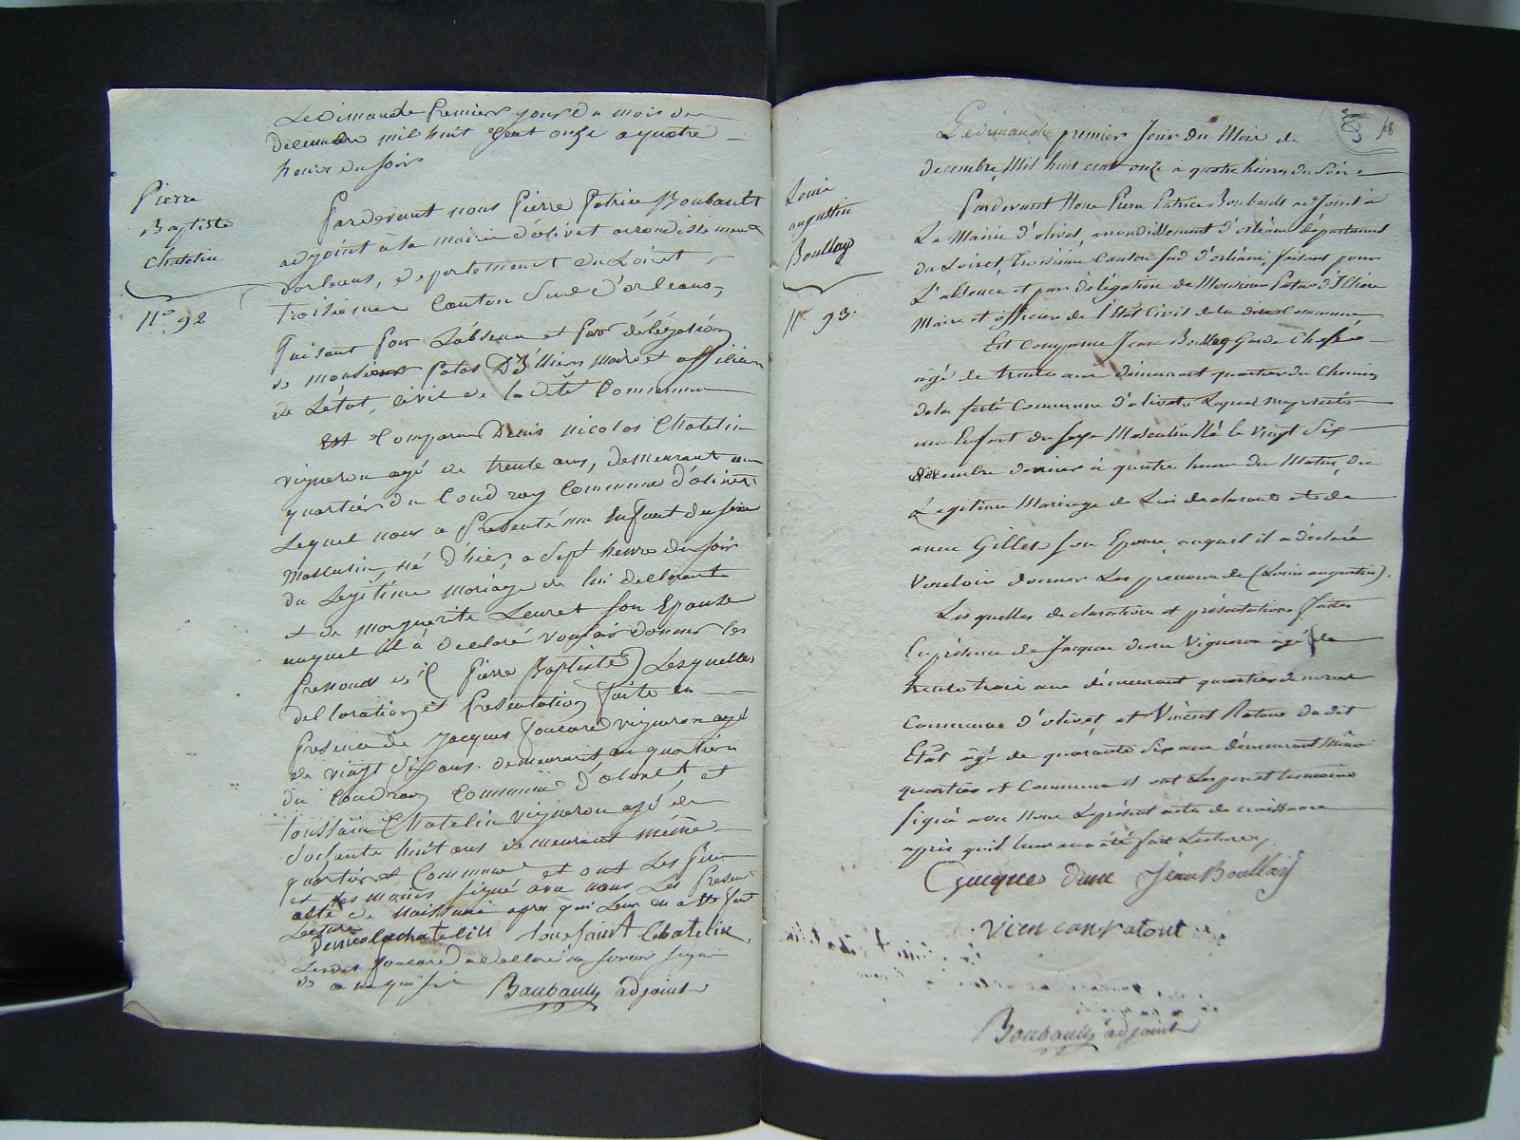 Le Dimanche Premier Jour du mois de
Decembre mil huit Cent onze a quatre
heures du soir
Pierre
Baptiste
Chatelin
N.º 92
Pardevant nous Pierre Patrice Boubault
adjoint à la mairie d'olivet arondissement
dorleans, departement du Loiret
Troisieme Canton Sud d'orleans,
faisant par Labsence et par délégation
de monsieur Patas D'Illiers maire et officier
de Létat civil de la dite Commune
est Comparu Denis nicolas Chatelin
vigneron agé de trente ans, demeurant au
quartier du Coudray Commune d'olivet
Lequel nous a presenté un Enfant du sexe
masculin, né d'hier, a Sept heures du soir
du Legitime mariage de lui declarant
et de marguerite Leuret son Epouse
auquel il a declaré vouloir donner les
prenoms de ( Pierre Baptiste) Lesquelles
declaration et presentation faite en
presence de Jacques foucard vigneron agé
de vingt six ans demeurant au quartier
du Coudray Commune d'olivet et
toussaint Chatelin vigneron agé de
soixante huit ans demeurant même
quartier et Commune et ont Les père
et temoins signé avec nous Les Present
acte de Naissance apres qui Leur en a été fait
Lecture
denis nicola chatelin toussaint Chatelin
Le dit foucard a declaré ne savoir signer
de ce requis
Boubault adjoint
68
Louis
augustin
Boullay
N.º 93.
Le dimanche premier Jour du Mois de
decembre Mil huit cent onze à quatre heures du Soir
Pardevant Nous Pierre Patrice Boubault adjoint à
La Mairie d'olivet, arrondissement d'orléans département
du Loiret, troisieme Canton Sud d'orléans, faisant pour
L'absence et par délégation de Monsieur Patas d'Illiers
Maire et officier de l'Etat Civil de la dite Commune
Est Comparu Jean Boullay Garde Chasse
agé de trente ans demeurant quartier du Chemin
de la ferté Commune d'olivet Lequel nous a presenté
un Enfant du Sexe Masculin Né le Vingt Six
dernier à quatre heures du Matin, du
Légitime Mariage de Lui declarant et de
anne Gilles son Epouse, auquel il a déclaré
Vouloir donner Les prenoms de (Louis augustin).
Les quelles declaration et présentation faites
En présence de Jacques Vigneron agé de
trente trois ans demeurant quartier
Commune d'olivet, et Vincent Ratout dudit
Etat agé de quarante Six ans demeurant Même
quartier et Commune et ont Les pere et temoins
Signé avec Nous Le présent acte de naissance
après qu'il leur en a été fait Lecture,
Jacques Jean Boullay
Vincent ratout
Boubault adjoint